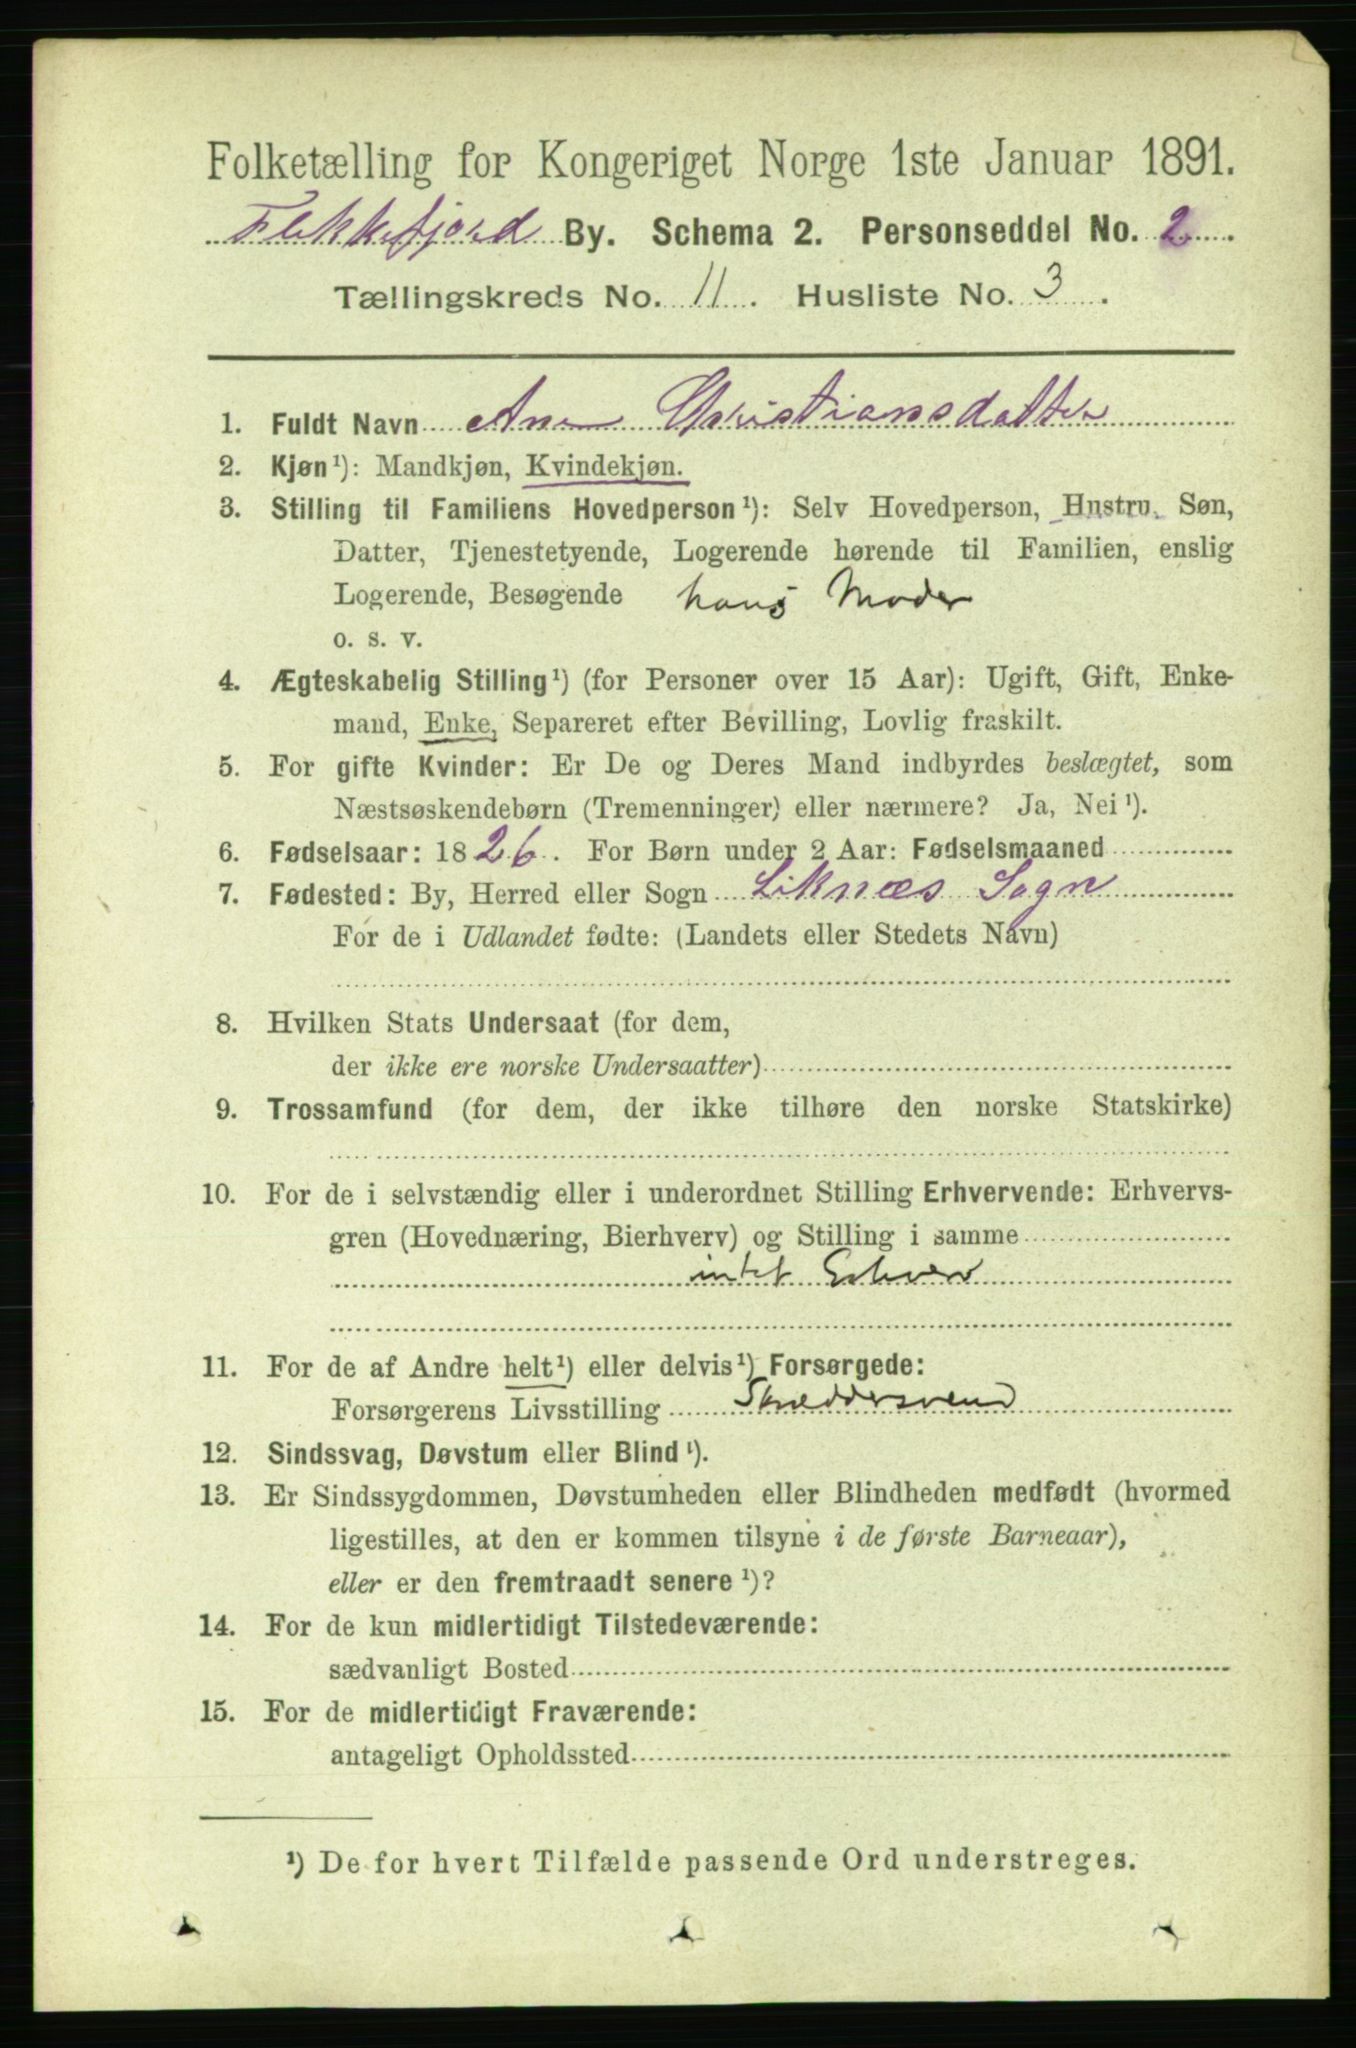 Folketælling for Kongeriget Norge 1ste Januar 1891.
Flekkefjord By. Schema 2. Personseddel No. 2.
Tællingskreds No. 11. Husliste No. 3.
1. Fuldt Navn Ane Christiansdatter
2. Kjøn¹): Mandkjøn, Kvindekjøn.
3. Stilling til Familiens Hovedperson¹): Selv Hovedperson, Hustru, Søn,
Datter, Tjenestetyende, Logerende hørende til Familien, enslig
Logerende, Besøgende hans Moder
o. s. v.
4. Ægteskabelig Stilling¹) (for Personer over 15 Aar): Ugift, Gift, Enke-
mand, Enke, Separeret efter Bevilling, Lovlig fraskilt.
5. For gifte Kvinder: Er De og Deres Mand indbyrdes beslægtet, som
Næstsøskendebørn (Tremenninger) eller nærmere? Ja, Nei¹).
6. Fødselsaar: 1826. For Børn under 2 Aar: Fødselsmaaned
7. Fødested: By, Herred eller Sogn Liknæs Sogn
For de i Udlandet fødte: (Landets eller Stedets Navn)
8. Hvilken Stats Undersaat (for dem,
der ikke ere norske Undersaatter)
9. Trossamfund (for dem, der ikke tilhøre den norske Statskirke)
10. For de i selvstændig eller i underordnet Stilling Erhvervende: Erhvervs-
gren (Hovednæring, Bierhverv) og Stilling i samme
intet Erhverv
11. For de af Andre helt¹) eller delvis¹) Forsørgede:
Forsørgerens Livsstilling Skræddersvend
12. Sindssvag, Døvstum eller Blind¹).
13. Er Sindssygdommen, Døvstumheden eller Blindheden medfødt (hvormed
ligestilles, at den er kommen tilsyne i de første Barneaar),
eller er den fremtraadt senere¹)?
14. For de kun midlertidigt Tilstedeværende:
sædvanligt Bosted
15. For de midlertidigt Fraværende:
antageligt Opholdssted
¹) De for hvert Tilfælde passende Ord understreges.